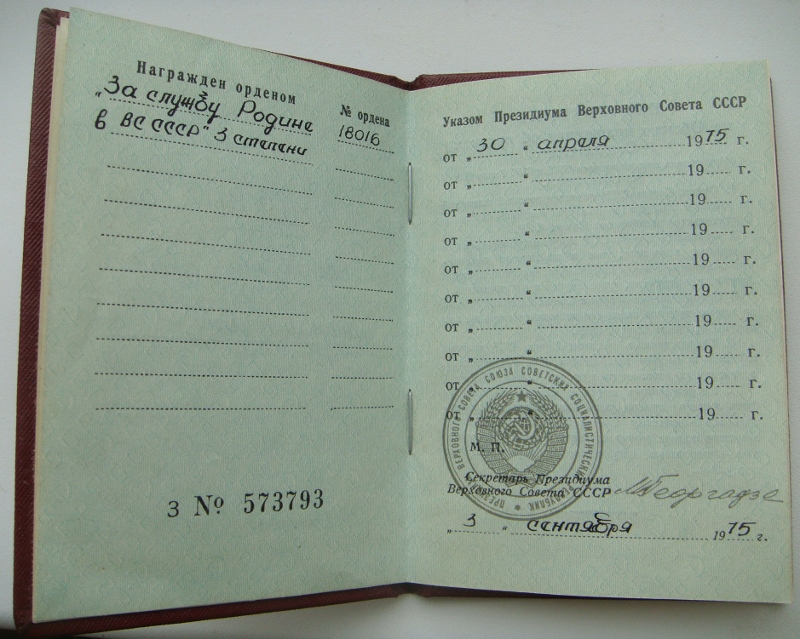 Награжден орденом
№ ордена
„За службу Родине
18016
в ВС СССР" 3 степени
З № 573793
Указом Президиума Верховного Совета СССР
от „ 30 “ апреля 1975 г.
от „ “ 19 г.
от „ “ 19 г.
от „ “ 19 г.
от „ “ 19 г.
от „ “ 19 г.
от „ “ 19 г.
от „ “ 19 г.
от „ “ 19 г.
от „ “ 19 г.
ПРЕЗИДИУМ ВЕРХОВНОГО СОВЕТА СОЮЗА СОВЕТСКИХ СОЦИАЛИСТИЧЕСКИХ РЕСПУБЛИК
М. П.
Секретарь Президиума
Верховного Совета СССР МГеоргадзе
„ 3 “ сентября 1975 г.